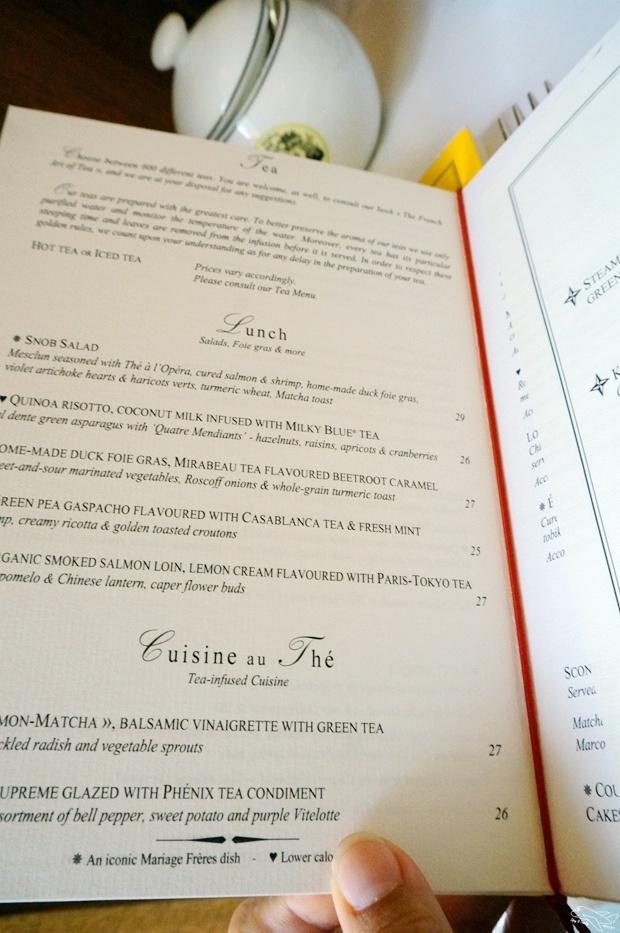 Tea
Choose between 600 different teas. You are welcome, as well, to consult our book « The French
Art of Tea », and we are at your disposal for any suggestions.
Our teas are prepared with the greatest care. To better preserve the aroma of our teas we use only
purified water and monitor the temperature of the water. Moreover, every tea has its particular
steeping time and leaves are removed from the infusion before it is served. In order to respect these
golden rules, we count upon your understanding as for any delay in the preparation of your tea.
HOT TEA OR ICED TEA
Prices vary accordingly.
Please consult our Tea Menu
Lunch
Salads, Foie gras & more
❋ SNOB SALAD
Mesclun seasoned with Thé à l'Opéra, cured salmon & shrimp, home-made duck foie gras,
violet artichoke hearts & haricots verts, turmeric wheat, Matcha toast
29
♥ QUINOA RISOTTO, COCONUT MILK INFUSED WITH MILKY BLUE® TEA
al dente green asparagus with 'Quatre Mendiants' - hazelnuts, raisins, apricots & cranberries
26
OME-MADE DUCK FOIE GRAS, MIRABEAU TEA FLAVOURED BEETROOT CARAMEL
eet-and-sour marinated vegetables, Roscoff onions & whole-grain turmeric toast
27
REEN PEA GASPACHO FLAVOURED WITH CASABLANCA TEA & FRESH MINT
mp, creamy ricotta & golden toasted croutons
25
GANIC SMOKED SALMON LOIN, LEMON CREAM FLAVOURED WITH PARIS-TOKYO TEA
pomelo & Chinese lantern, caper flower buds
27
Cuisine au Thé
Tea-infused Cuisine
MON-MATCHA », BALSAMIC VINAIGRETTE WITH GREEN TEA
ckled radish and vegetable sprouts
27
UPREME GLAZED WITH PHÉNIX TEA CONDIMENT
sortment of bell pepper, sweet potato and purple Vitelotte
26
❋ An iconic Mariage Frères dish - ♥ Lower calo
STEAM
GREEN
K
LO
Chi
serv
Acc
❋ É
Curr
tobik
Acco
SCON
Served
Matcha
Marco
❋ COU
CAKES